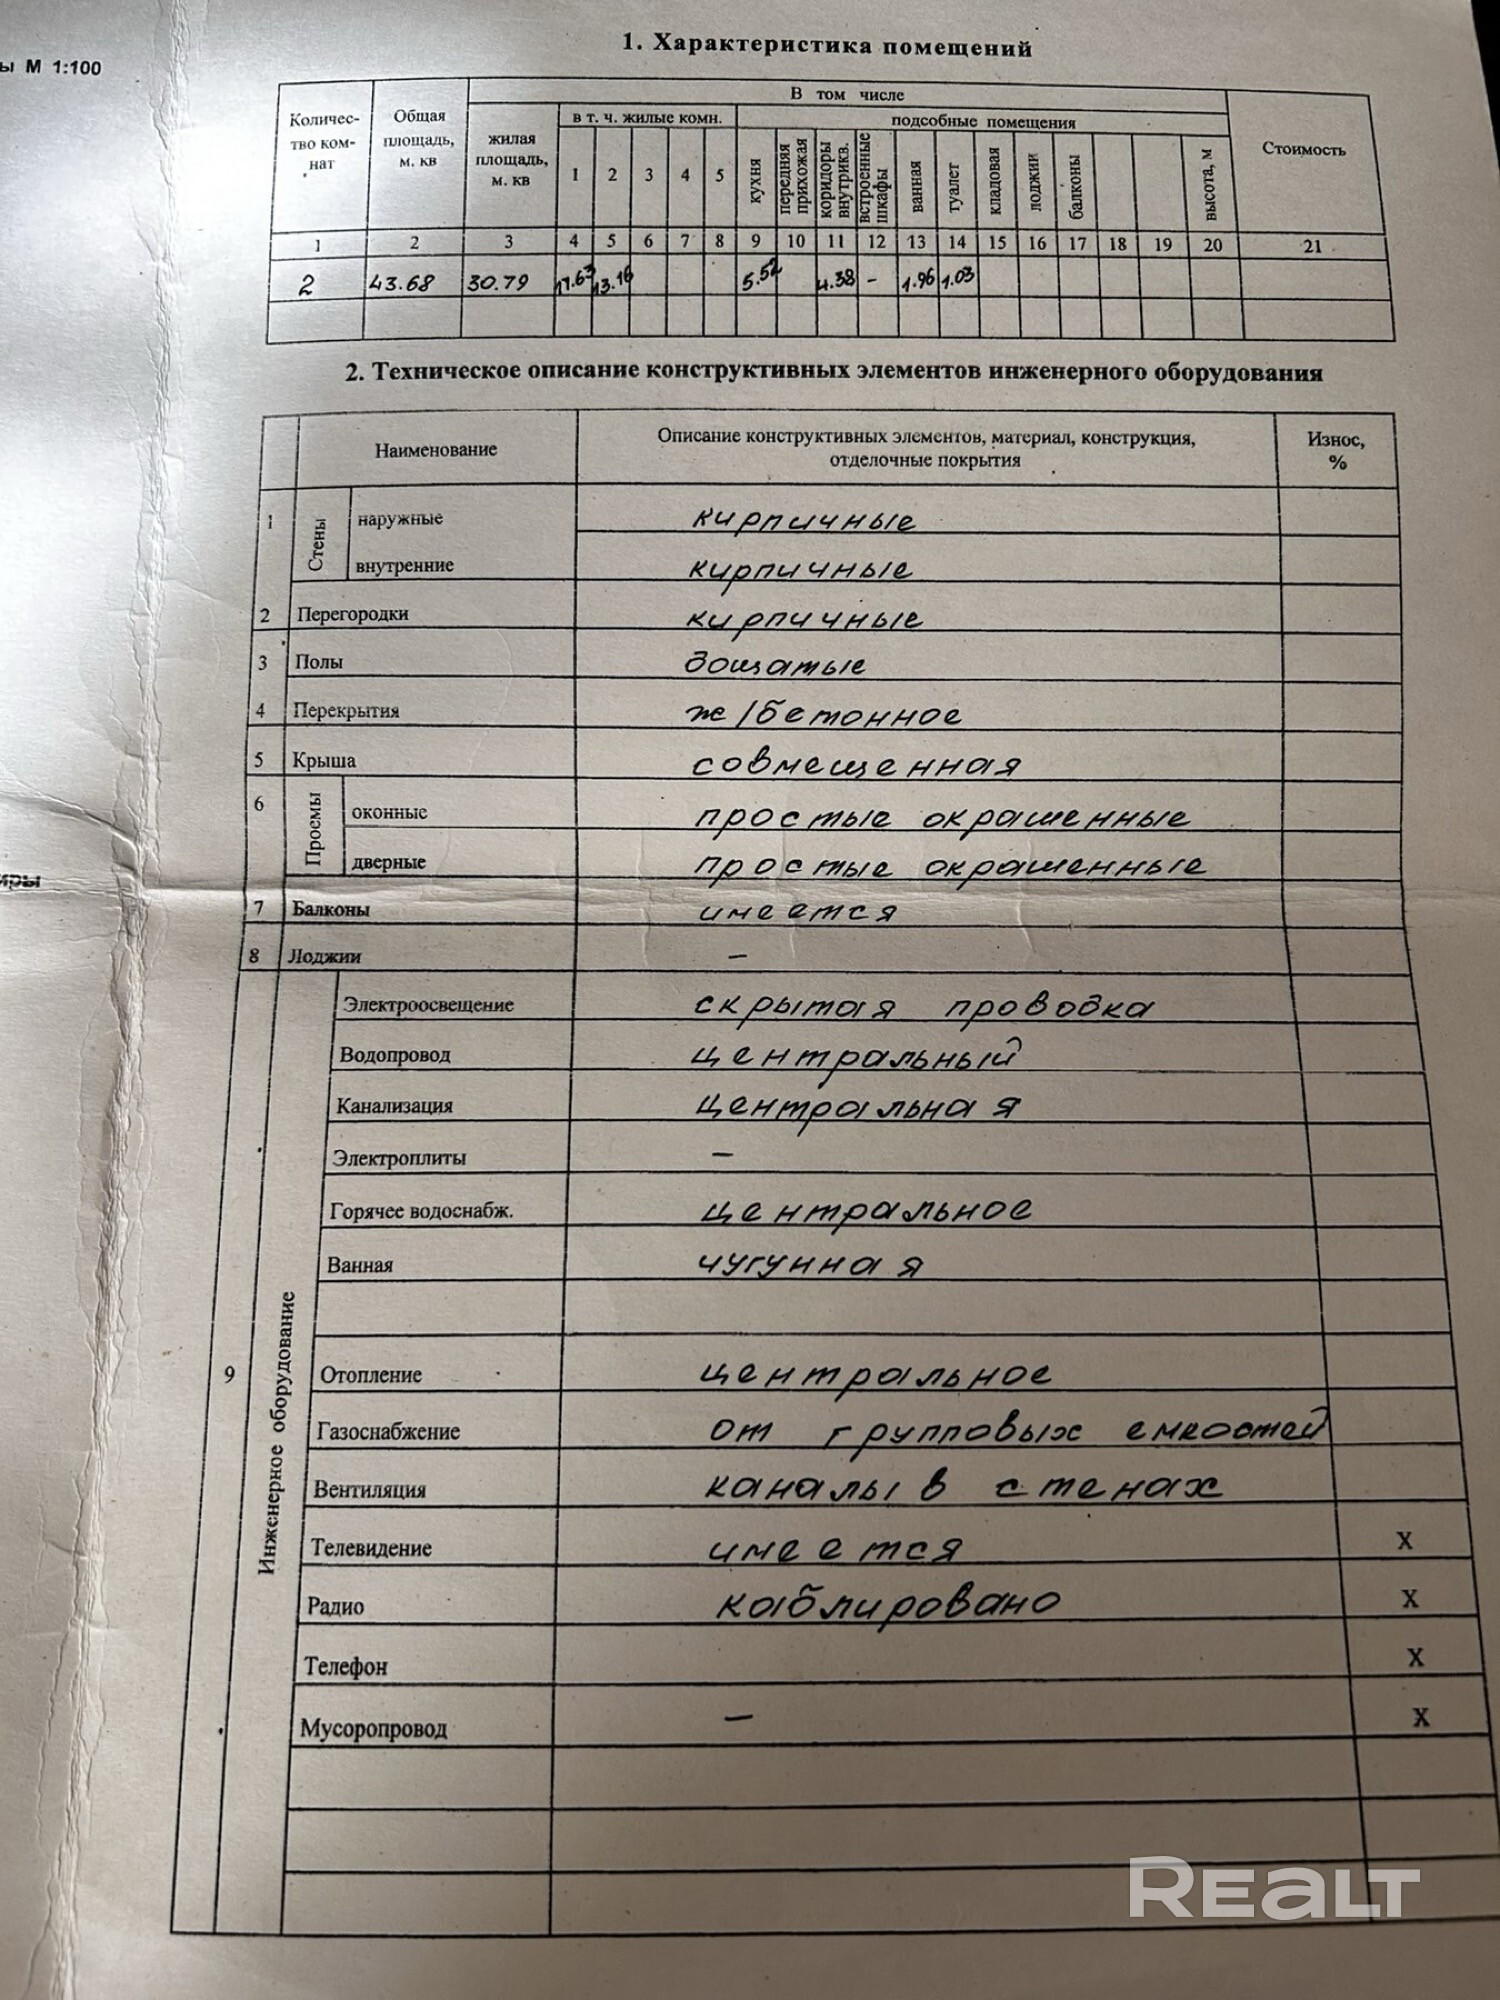 ы М 1:100
1. Характеристика помещений
Количес-
тво ком-
нат
Общая
площадь,
м. кв
В том числе
жилая
площадь,
м. кв
в т. ч. жилые комн.
подсобные помещения
1 2 3 4 5
кухня
передняя
прихожая
коридоры
внутрикв.
встроенные
шкафы
ванная
туалет
кладовая
лоджии
балконы
высота, м
Стоимость
1 2 3 4 5 6 7 8 9 10 11 12 13 14 15 16 17 18 19 20 21
2 43.68 30.79 17.63 13.16 5.52 4.38 - 1.96 1.03
2. Техническое описание конструктивных элементов инженерного оборудования
Наименование
Описание конструктивных элементов, материал, конструкция,
отделочные покрытия
Износ,
%
1 Стены наружные кирпичные
внутренние кирпичные
2 Перегородки кирпичные
3 Полы дощатые
4 Перекрытия ж/бетонное
5 Крыша совмещенная
6 Проемы оконные простые окрашенные
дверные простые окрашенные
7 Балконы имеется
8 Лоджии -
9 Инженерное оборудование
Электроосвещение скрытая проводка
Водопровод центральный
Канализация центральная
Электроплиты -
Горячее водоснабж. центральное
Ванная чугунная
Отопление центральное
Газоснабжение от групповых емкостей
Вентиляция каналы в стенах
Телевидение имеется X
Радио каблировано X
Телефон X
Мусоропровод - X
иры
REALT